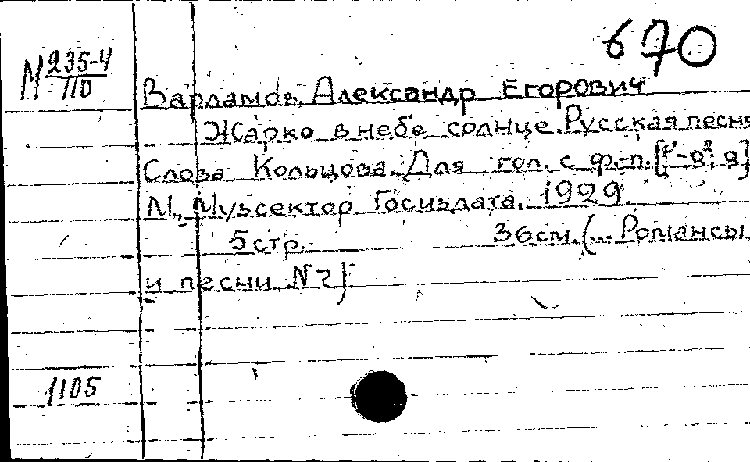 670
М 235-4
110
Варламов, Александр Егорович
Жарко в небе солнце. Русская песня
Слова Кольцова. Для гол. с ф.п.
М., Музсектор Госиздата, 1929
5 стр. 36 см. (... Романсы
и песни N 7)
1105